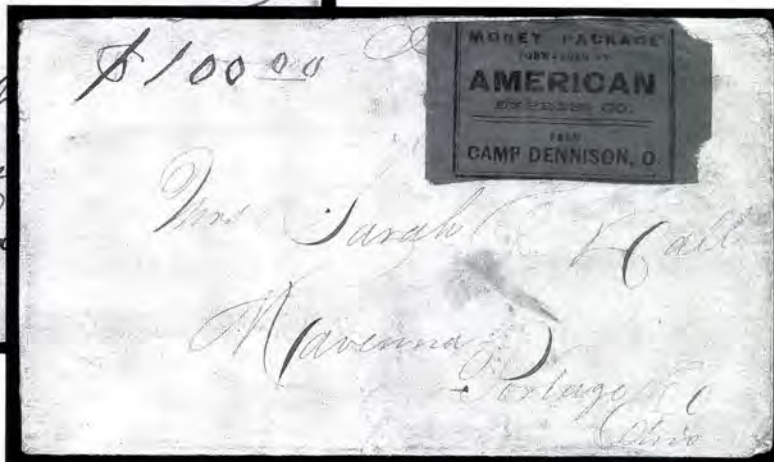 $100 00
MONEY PACKAGE
FORWARDED BY
AMERICAN
EXPRESS CO.
FROM
CAMP DENNISON, O.
Mrs Sarah Hall
Ravenna
Portage Co
Ohio